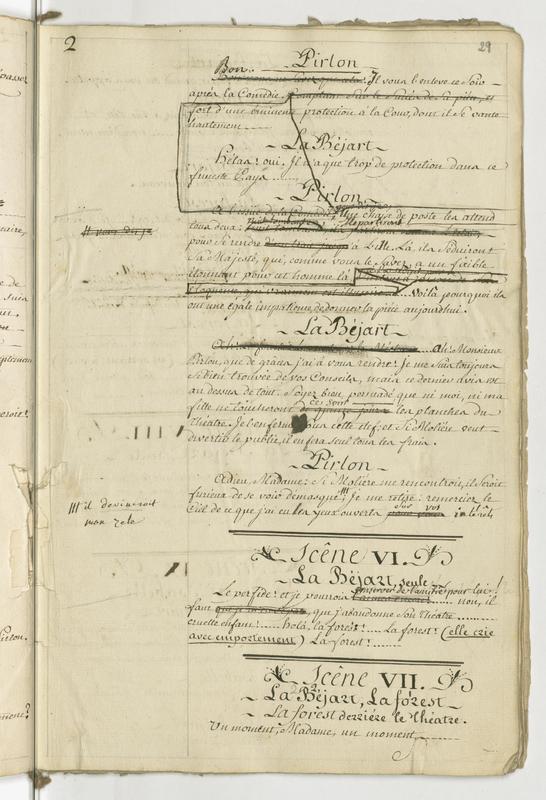 2
29
Pirlon
Bon. Il vous l'enleve ce Soir
après la Comédie. Comptant Sur le Succès de Sa pièce, et
fort d'une éminente protection à la Cour, dont il se vante
hautement
La Béjart
hélas! oui. Il n'a que trop de protection dans ce
funeste Pays......
Pirlon
À l'issue de la Comédie, Une chaise de poste les attend
tous deux:
pour se rendre à Lille. Là, ils Séduiront
Sa Majesté, qui, comme vous le Savez, a un foible
étonnant pour cet homme là
Voilà pourquoi ils
ont une égale impatience de donner la pièce aujourdhui.
La Béjart
Ah! Monsieur
Pirlon, que de graces j'ai à vous rendre! Je me Suis toujours
Si bien trouvée de vos Conseils, mais ce dernier avis est
au dessus de tout. Soyez bien persuadé que ni moi, ni ma
fille ne toucherons ce Soir les planches du
théatre. Je l'enferme Sous cette clef; et Si Molière veut
divertir le public, il en fera Seul tous les frais.
Pirlon
Adieu, Madame: Si Molière me rencontroit, il Seroit
furieux de se voir démasqué. Je me retire: remerciez le
Ciel de ce que j'ai eu les yeux ouverts sur vos intérêts
il devineroit
mon zele
Scène VI.
La Béjart, seule
Le perfide! et je pourrois conserver de l'amitié pour lui!
..... non, il
faut que j'abandonne Son théatre ......
cruelle enfant! .... holà, la forest! ..... La forest! (elle crie
avec emportement) La forest! .......
Scène VII.
La Béjart, La forest
La forest derriére le théatre.
Un moment, Madame, un moment